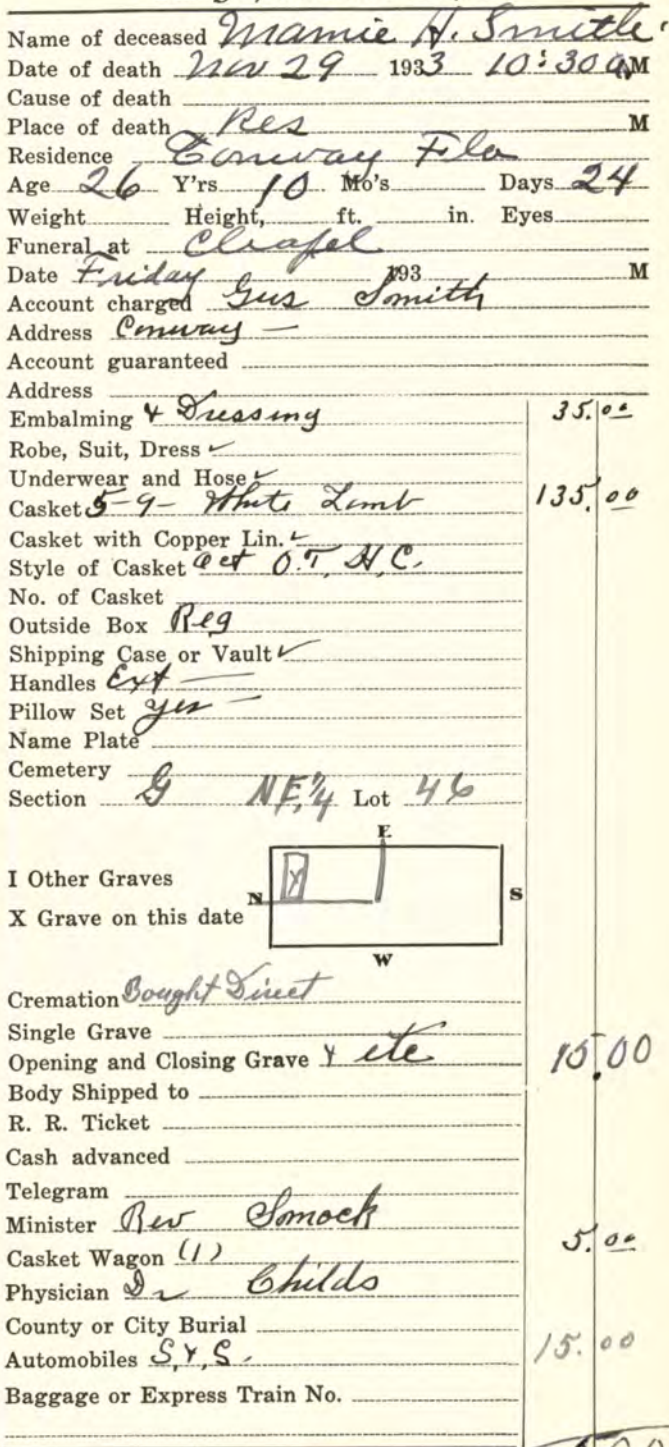 Name of deceased Mamie H. Smith
Date of death Nov 29 1933 10:30 a M
Cause of death
Place of death Res M
Residence Conway Fla
Age 26 Y'rs 10 Mo's Days 24
Weight Height, ft. in. Eyes
Funeral at Chapel
Date Friday 193 M
Account charged Gus Smith
Address Conway —
Account guaranteed
Address
Embalming & Dressing 35.00
Robe, Suit, Dress ✓
Underwear and Hose ✓
Casket 5-9- White Lamb 135.00
Casket with Copper Lin. ✓
Style of Casket Oct O.T. H.C.
No. of Casket
Outside Box Reg
Shipping Case or Vault ✓
Handles Ext —
Pillow Set yes —
Name Plate
Cemetery
Section G NE 1/4 Lot 46
E
I Other Graves
N X S
X Grave on this date
W
Cremation Bought Direct
Single Grave
Opening and Closing Grave & etc 15.00
Body Shipped to
R. R. Ticket
Cash advanced
Telegram
Minister Rev Smock
Casket Wagon (1) 5.00
Physician Dr Childs
County or City Burial
Automobiles S, & S. 15.00
Baggage or Express Train No.